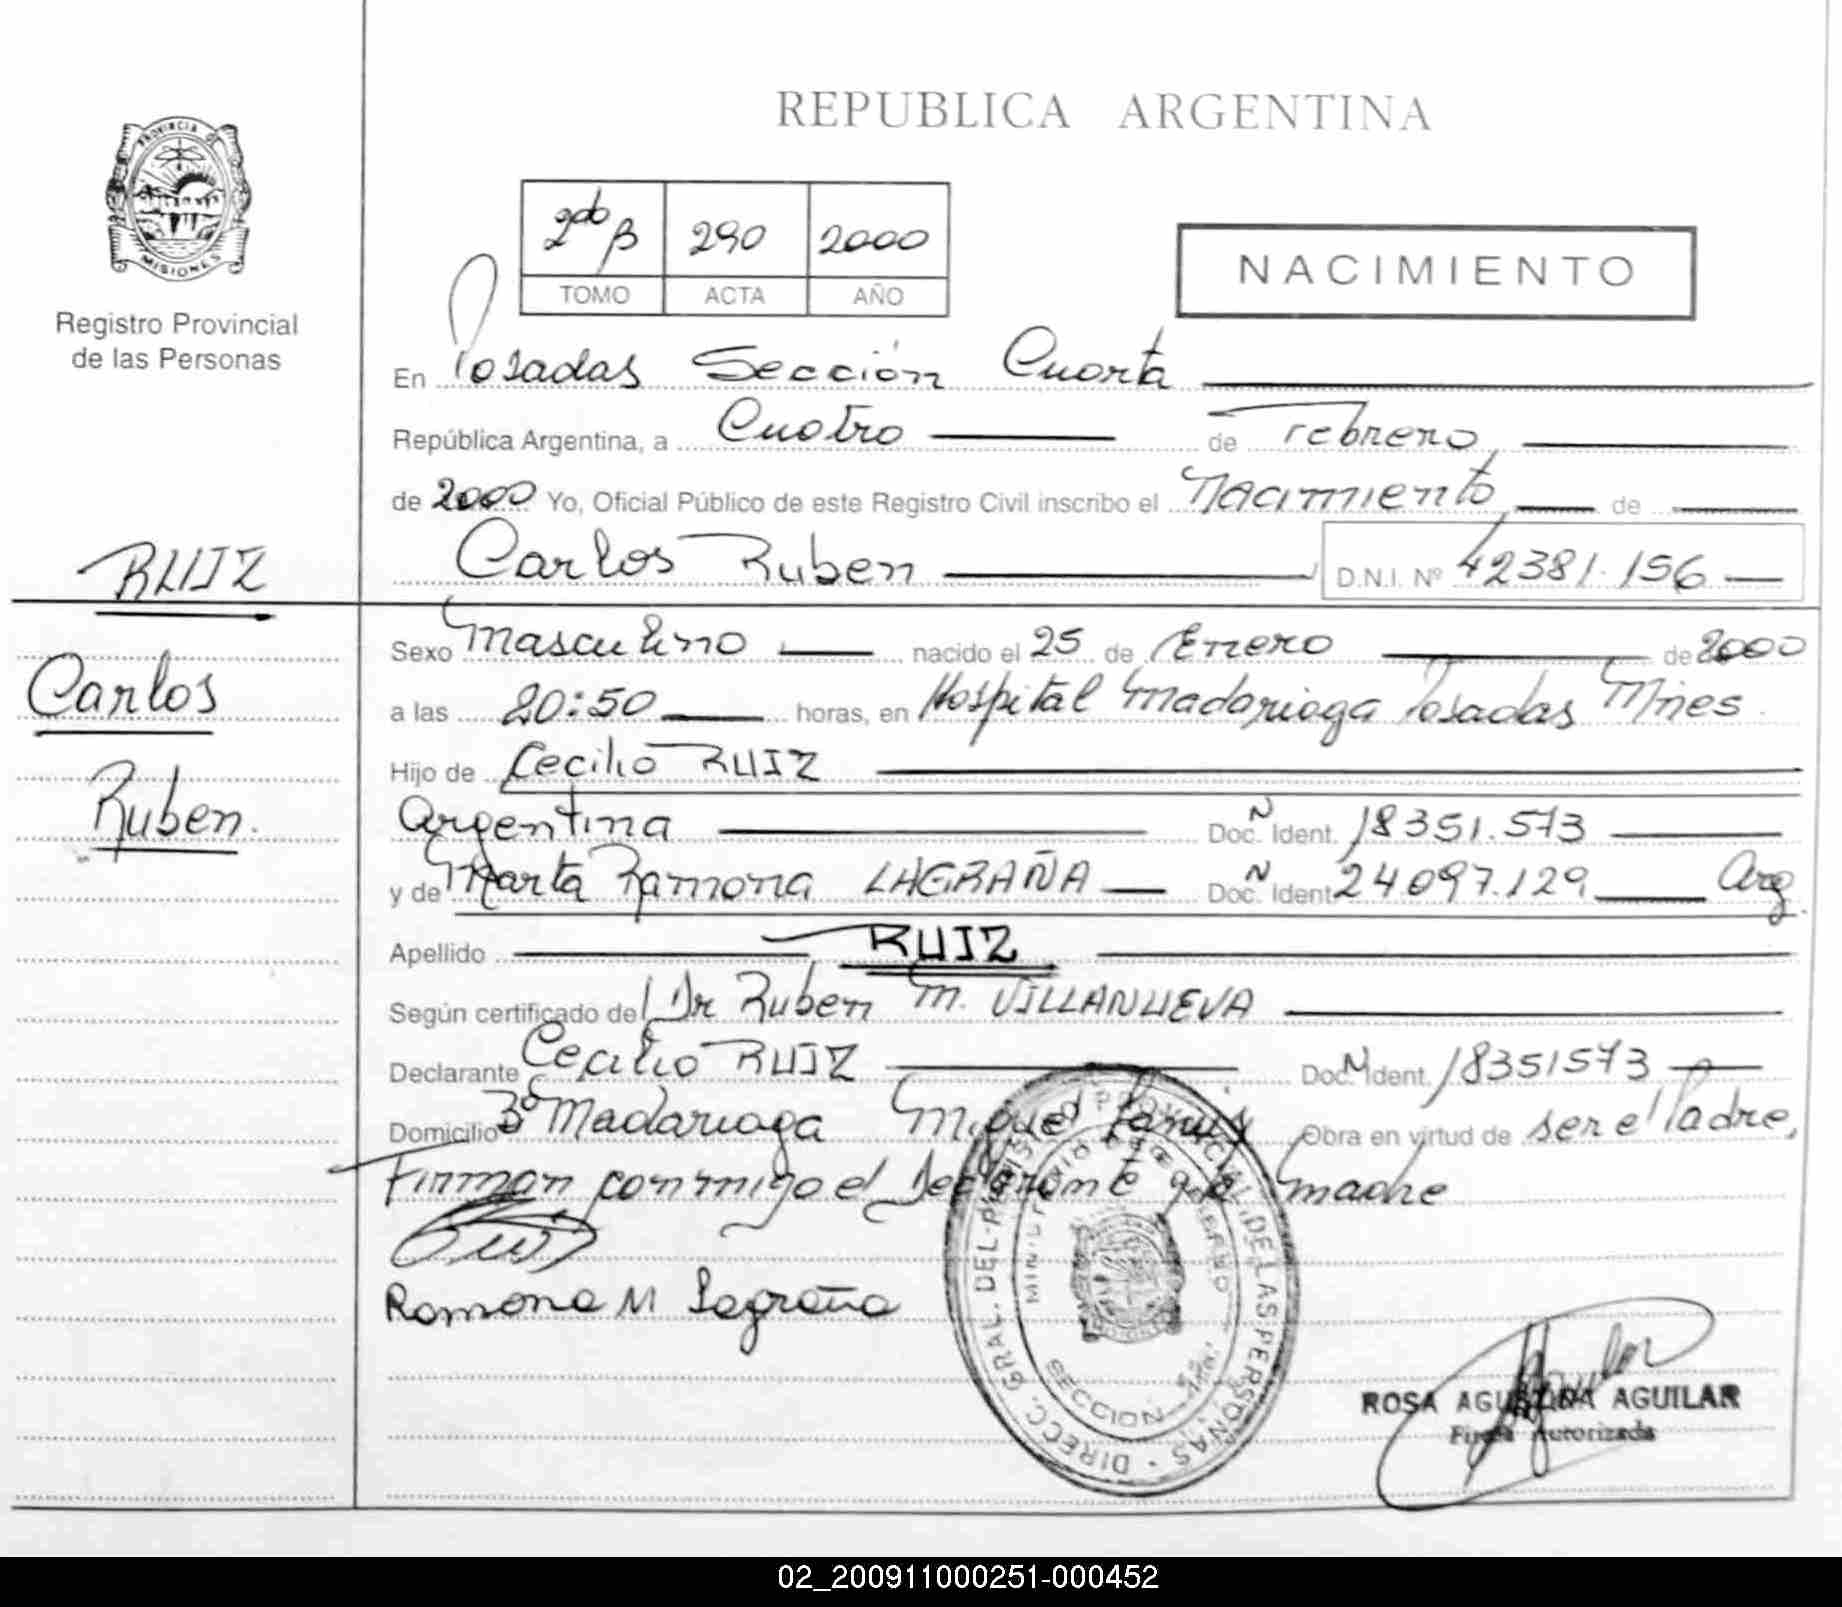 REPUBLICA ARGENTINA
PROVINCIA DE
MISIONES
Registro Provincial
de las Personas
2do B 290 2000
TOMO ACTA AÑO
NACIMIENTO
En Posadas Sección Cuarta
República Argentina, a Cuatro de Febrero
de 2000 Yo, Oficial Público de este Registro Civil inscribo el Nacimiento de
Carlos Ruben D.N.I. Nº 42381.156
RUIZ
Carlos
Ruben.
Sexo Masculino nacido el 25 de Enero de 2000
a las 20:50 horas, en Hospital Madariaga Posadas Mnes.
Hijo de Cecilio RUIZ
Argentina Doc. N Ident. 18351.573
y de Marta Ramona LAGRAÑA Doc. N Ident. 24.097.129 Arg.
Apellido RUIZ
Según certificado del Dr Ruben M. VILLANUEVA
Declarante Cecilio RUIZ Doc. N Ident. 18351573
Domicilio Bº Madariaga Miguel Lanus Obra en virtud de ser el Padre,
Firman conmigo el Declarante y la madre
Ramona M Lagraña
DIRECC. GRAL. DEL REGISTRO PROVINCIAL DE LAS PERSONAS
MINISTERIO DE GOBIERNO
SECCION
ROSA AGUSTINA AGUILAR
Firma Autorizada
02_200911000251-000452